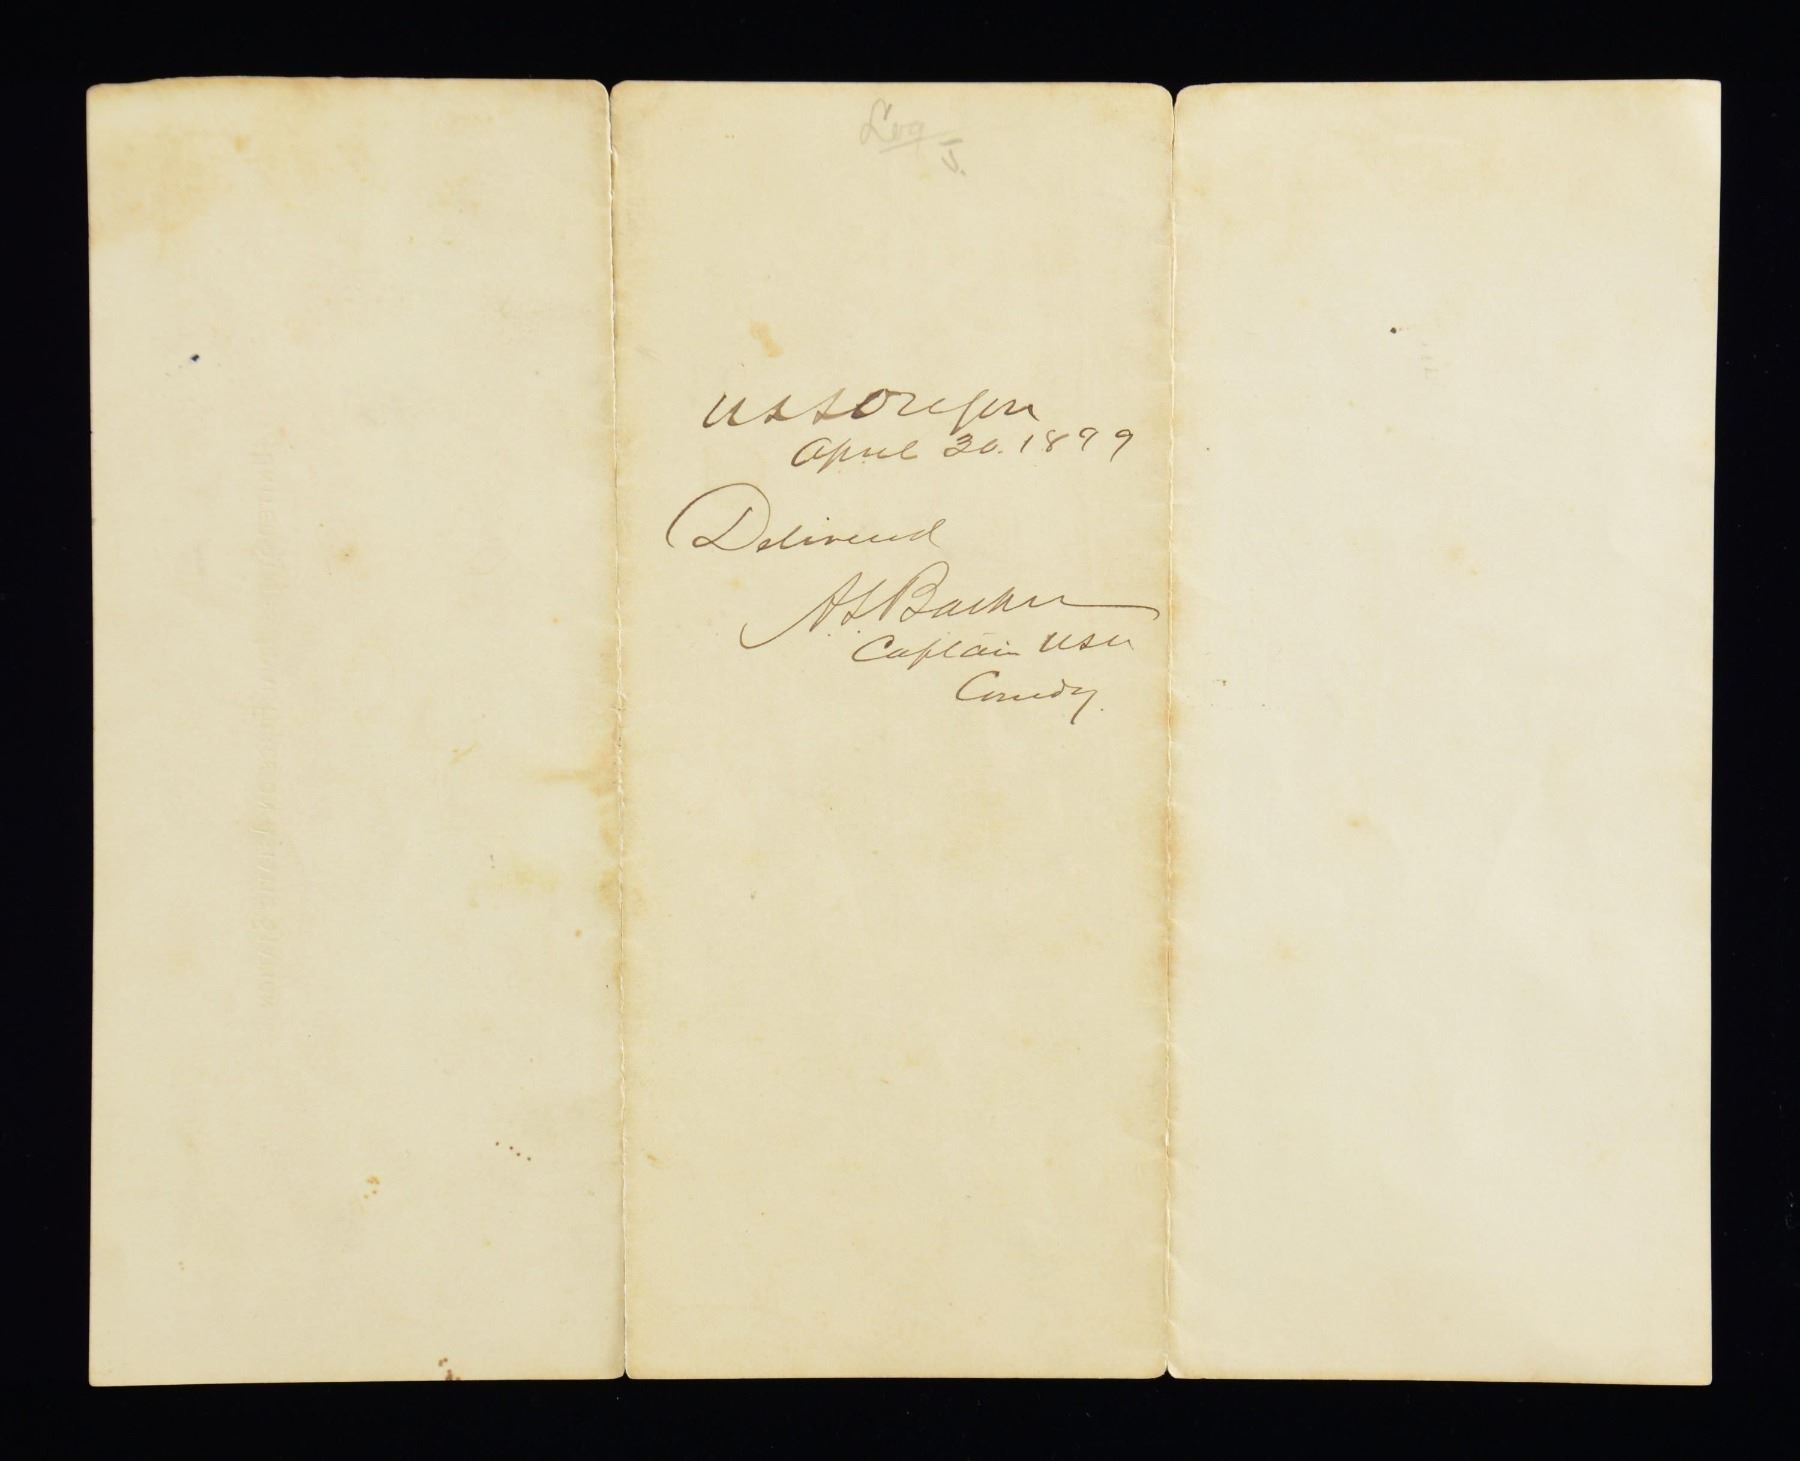 Log
J.
USS Oregon
April 30. 1899
Delivered
AS Barker
Captain USN
Comdg.